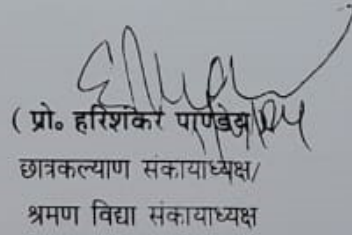 ( प्रो० हरिशंकर पाण्डेय )
छात्रकल्याण संकायाध्यक्ष/
श्रमण विद्या संकायाध्यक्ष